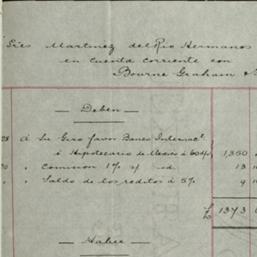 Sres Martinez del Rio Hermanos
en cuenta corriente con
Bourne Graham &
— Deben —
28 á Su Giro favor Banco Internacl.
é Hipotecario de Mexico á 60 d/v 1,350
" Comision 1% s/ 13
" Saldo de los reditos á 5% 9
£ 1373
— Haber —